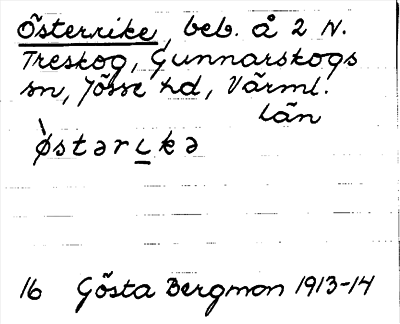 Österrike, beb. å 2 N.
Treskog, Gunnarskogs
sn, Jösse hd, Värml.
län
`østəri̠kə
16 Gösta Bergman 1913-14